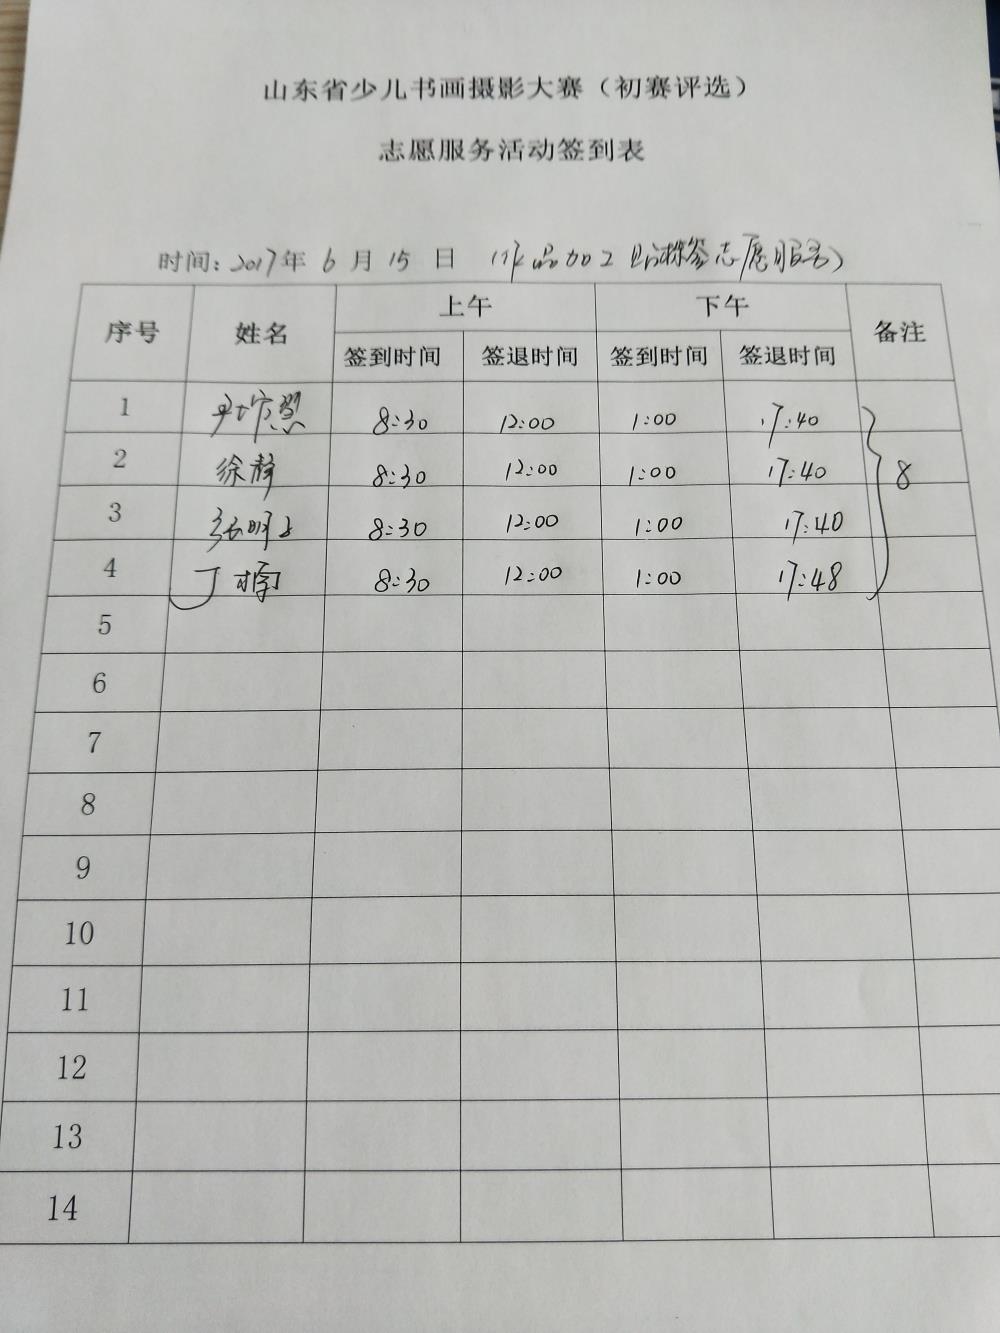 山东省少儿书画摄影大赛（初赛评选）
志愿服务活动签到表
时间：2017年 6 月 15 日 （作品加工 贴标签志愿服务）
序号 姓名 上午 下午 备注
签到时间 签退时间 签到时间 签退时间
1 8:30 12:00 1:00 17:40
2 徐静 8:30 12:00 1:00 17:40 8
3 张明 8:30 12:00 1:00 17:40
4 丁 8:30 12:00 1:00 17:48
5
6
7
8
9
10
11
12
13
14